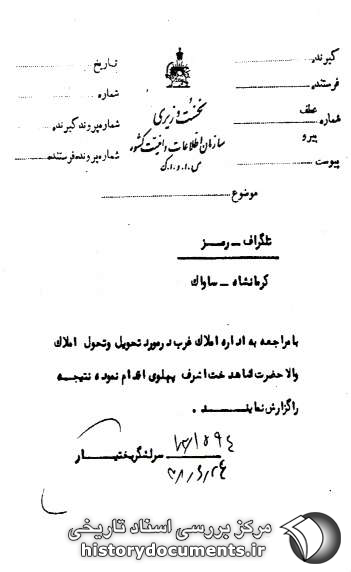 گیرنده
فرستنده
شماره
عطف
پیرو
پیوست
نخست وزیری
سازمان اطلاعات و امنیت کشور
س.ا.و.ا.ک
تاریخ
شماره
شماره پرونده گیرنده
شماره پرونده فرستنده
موضوع
تلگراف - رمز
کرمانشاه - ساواک
با مراجعه به اداره املاک غرب در مورد تحویل و تحول املاک
والاحضرت شاهدخت اشرف پهلوی اقدام نموده نتیجه
را گزارش نمایند .
سرلشگر بختیار
۳۸/۶/۲۴
مرکز بررسی اسناد تاریخی
historydocuments.ir